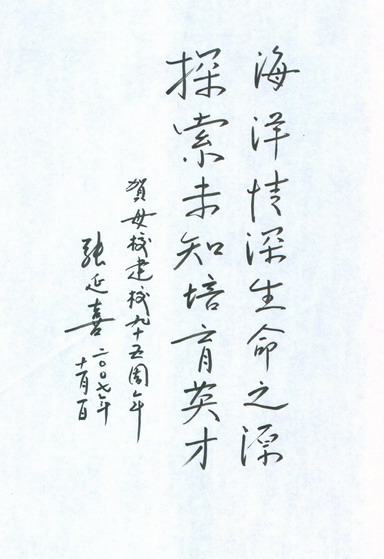 海洋情深生命之源
探索未知培育英才
賀母校建校九十五周年
張延喜
二〇〇七年
十月一日